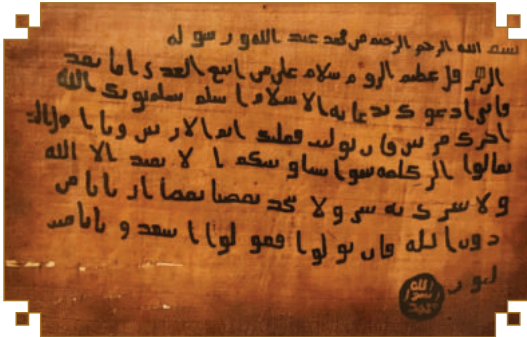 بسم الله الرحمن الرحيم من محمد عبد الله و رسوله
الى هرقل عظيم الروم سلام على من اتبع الهدى اما بعد
فاني ادعوك بدعاية الاسلام اسلم تسلم يوتك الله
اجرك مرتين فان توليت فعليك اثم الاريسين ويا اهل
تعالوا الى كلمة سوا بيننا وبينكم ا لا نعبد الا الله
ولا نشرك به شيئا ولا يتخذ بعضنا بعضا اربابا من
دون الله فان تولوا فقولوا اشهدوا بانا مس
لمون
الله
رسول
محمد